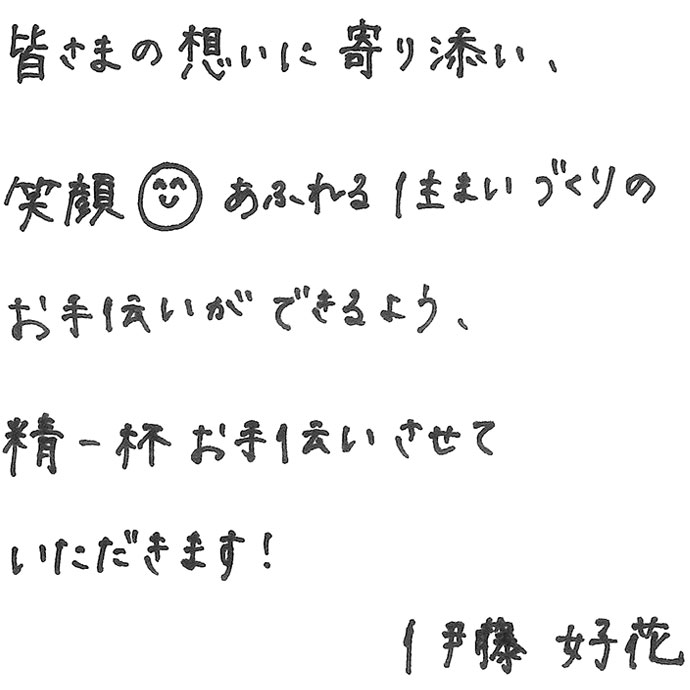 皆さまの想いに寄り添い、
笑顔😊あふれる住まいづくりの
お手伝いができるよう、
精一杯お手伝いさせて
いただきます！
伊藤 好花